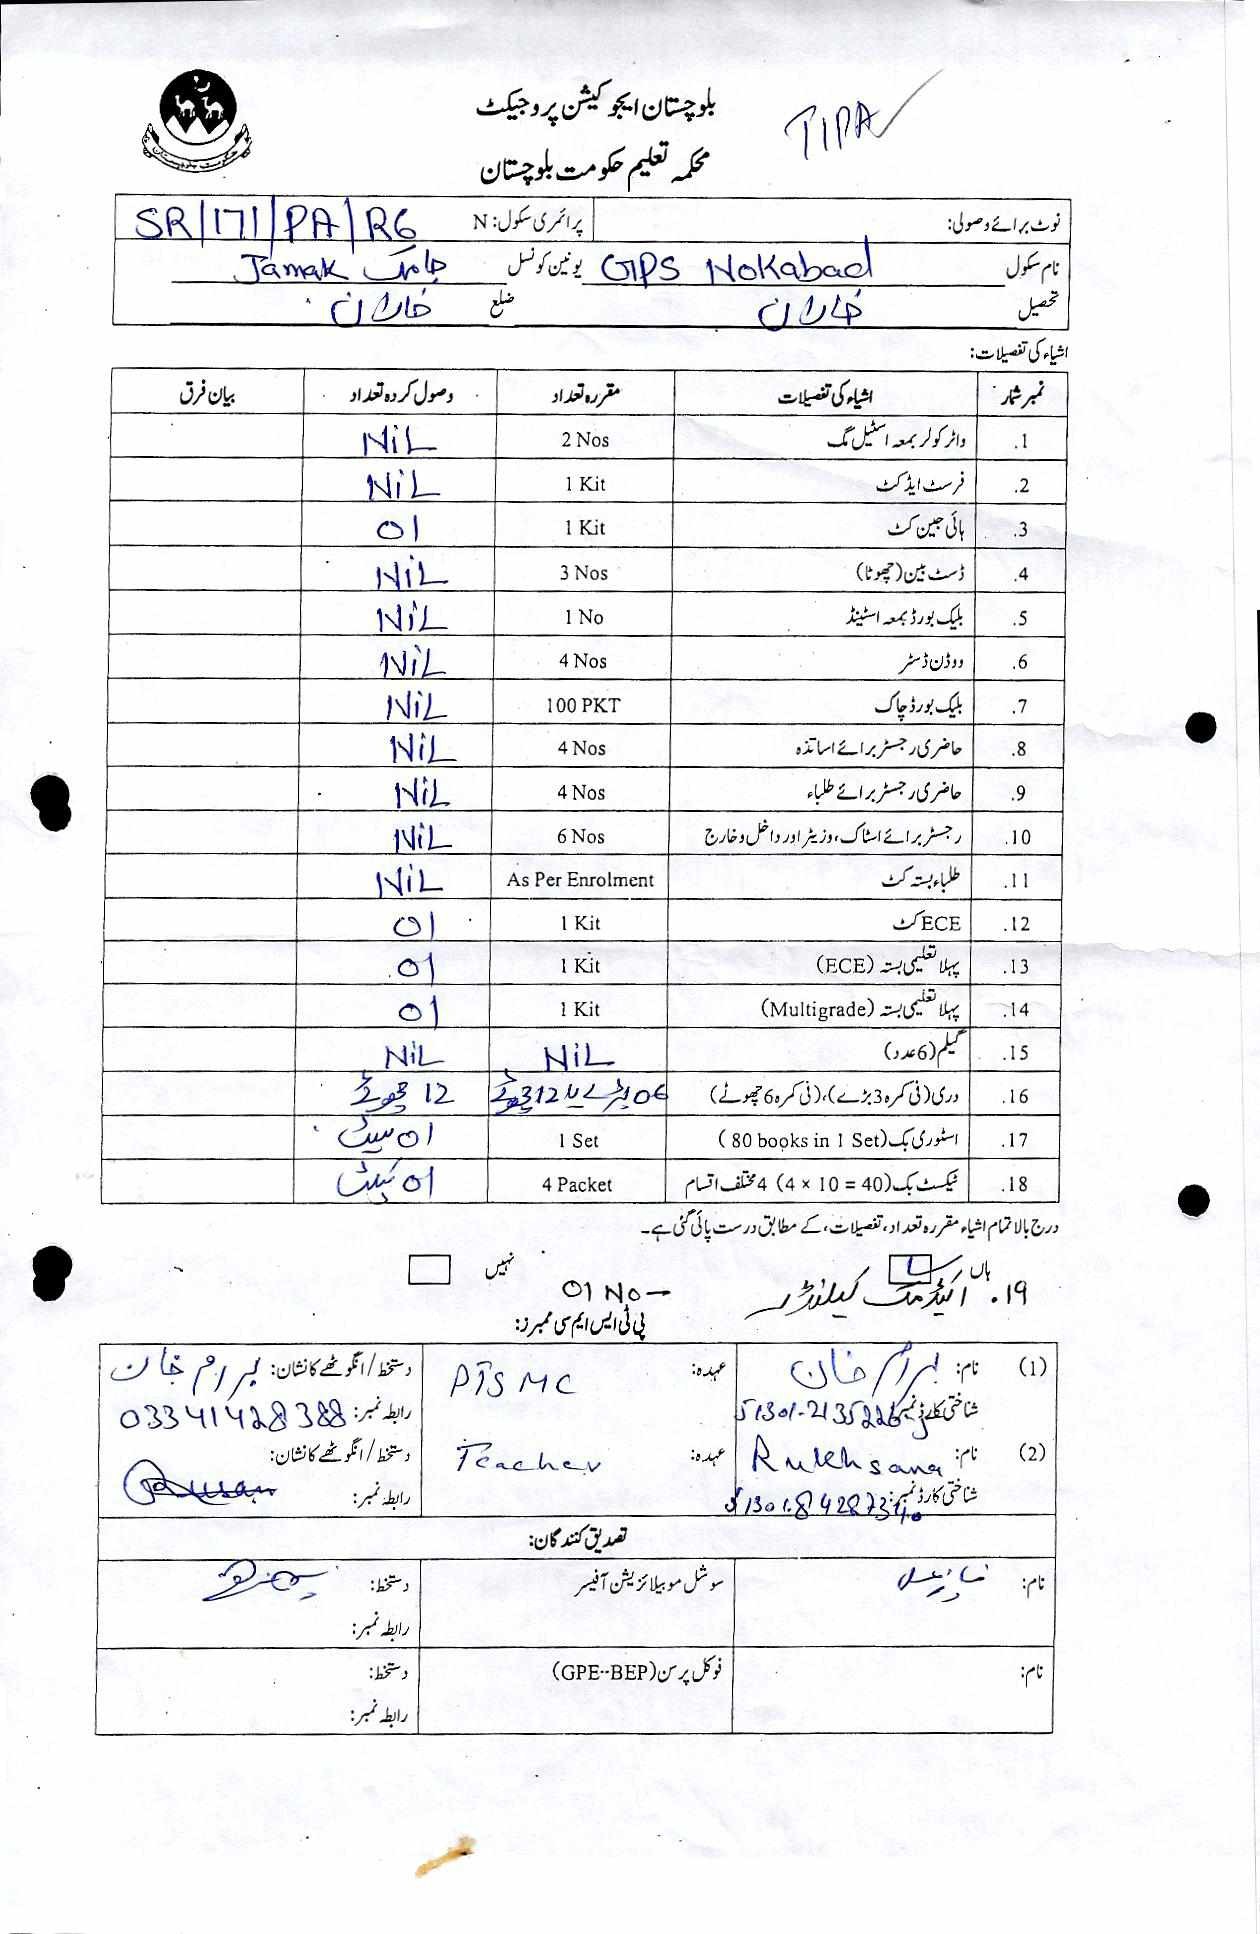 بلوچستان ایجوکیشن پروجیکٹ
TIPA
محکمہ تعلیم حکومت بلوچستان
حکومت بلوچستان
نوٹ برائے وصولی: پرائمری سکول: N SR/171/PA/R6
نام سکول GPS Nokabad یونین کونسل جامک Jamak
تحصیل خاران ضلع خاران
اشیاء کی تفصیلات:
نمبر شمار اشیاء کی تفصیلات مقررہ تعداد وصول کردہ تعداد بیان فرق
1. واٹر کولر بمعہ اسٹیل مگ 2 Nos NiL
2. فرسٹ ایڈ کٹ 1 Kit NiL
3. ہائی جین کٹ 1 Kit 01
4. ڈسٹ بین (چھوٹا) 3 Nos NiL
5. بلیک بورڈ بمعہ اسٹینڈ 1 No NiL
6. ووڈن ڈسٹر 4 Nos NiL
7. بلیک بورڈ چاک 100 PKT NiL
8. حاضری رجسٹر برائے اساتذہ 4 Nos NiL
9. حاضری رجسٹر برائے طلباء 4 Nos NiL
10. رجسٹر برائے اسٹاک، وزیٹر اور داخل و خارج 6 Nos NiL
11. طلباء بستہ کٹ As Per Enrolment NiL
12. ECE کٹ 1 Kit 01
13. پہلا تعلیمی بستہ (ECE) 1 Kit 01
14. پہلا تعلیمی بستہ (Multigrade) 1 Kit 01
15. گیلم (6 عدد) NiL NiL
16. دری (فی کمرہ 3 بڑے)، (فی کمرہ 6 چھوٹے) 06 بڑے یا 12 چھوٹے 12 چھوٹے
17. اسٹوری بک (80 books in 1 Set) 1 Set 01 سیٹ
18. ٹیکسٹ بک (4 × 10 = 40) 4 مختلف اقسام 4 Packet 01 پیکٹ
درج بالا تمام اشیاء مقررہ تعداد، تفصیلات، کے مطابق درست پائی گئی ہے۔
ہاں نہیں
19. اکیڈمک کیلنڈر 01 No
پی ٹی ایس ایم سی ممبرز:
(1) نام: بہرام خان عہدہ: PTSMC دستخط/انگوٹھے کا نشان: بہرام خان
شناختی کارڈ نمبر: رابطہ نمبر: 03341428388
(2) نام: Rukhsana عہدہ: Teacher دستخط/انگوٹھے کا نشان:
شناختی کارڈ نمبر: رابطہ نمبر:
تصدیق کنندگان:
نام: سوشل موبیلائزیشن آفیسر دستخط:
رابطہ نمبر:
نام: فوکل پرسن (GPE--BEP) دستخط:
رابطہ نمبر: